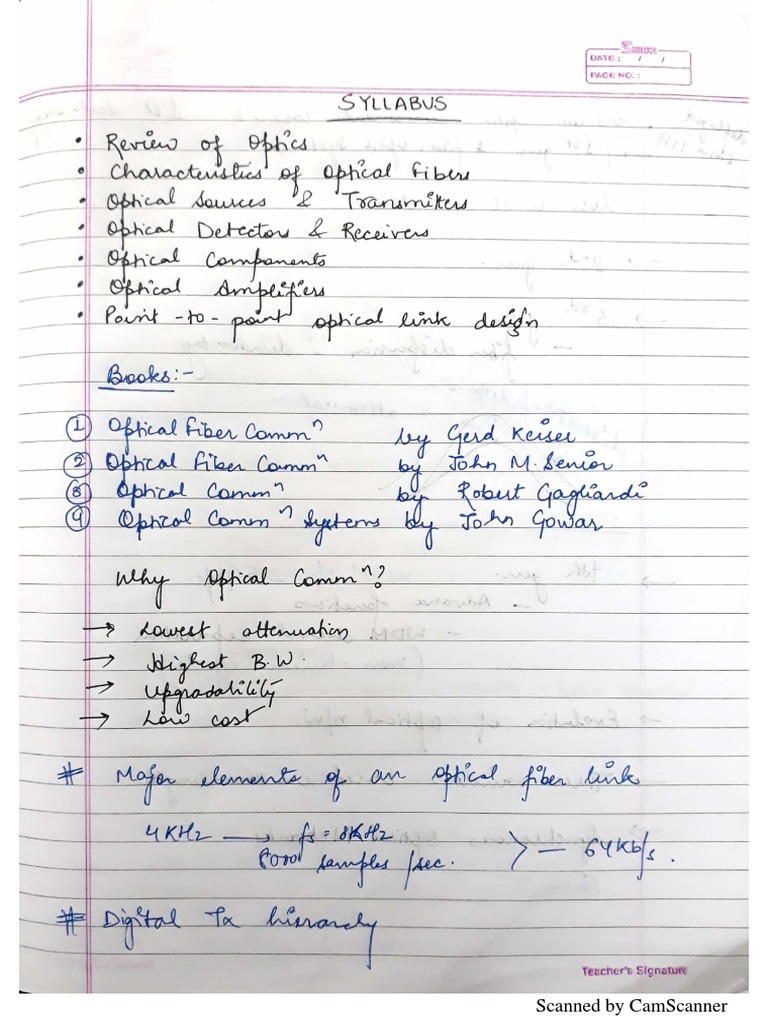 Saurav
DATE: / /
PAGE NO.:
SYLLABUS
• Review of Optics
• Characteristics of Optical Fibers
• Optical Sources & Transmitters
• Optical Detectors & Receivers
• Optical Components
• Optical Amplifiers
• Point-to-point optical link design
Books:-
① Optical Fiber Commⁿ by Gerd Keiser
② Optical Fiber Commⁿ by John M. Senior
③ Optical Commⁿ by Robert Gagliardi
④ Optical Commⁿ Systems by John Gowar
Why Optical Commⁿ?
→ Lowest attenuation
→ Highest B.W.
→ Upgradability
→ Low cost
# Major elements of an optical fiber link
4KHz → fs = 8KHz
8000 samples/sec. > – 64Kb/s.
# Digital Tx hierarchy
Teacher's Signature
Scanned by CamScanner